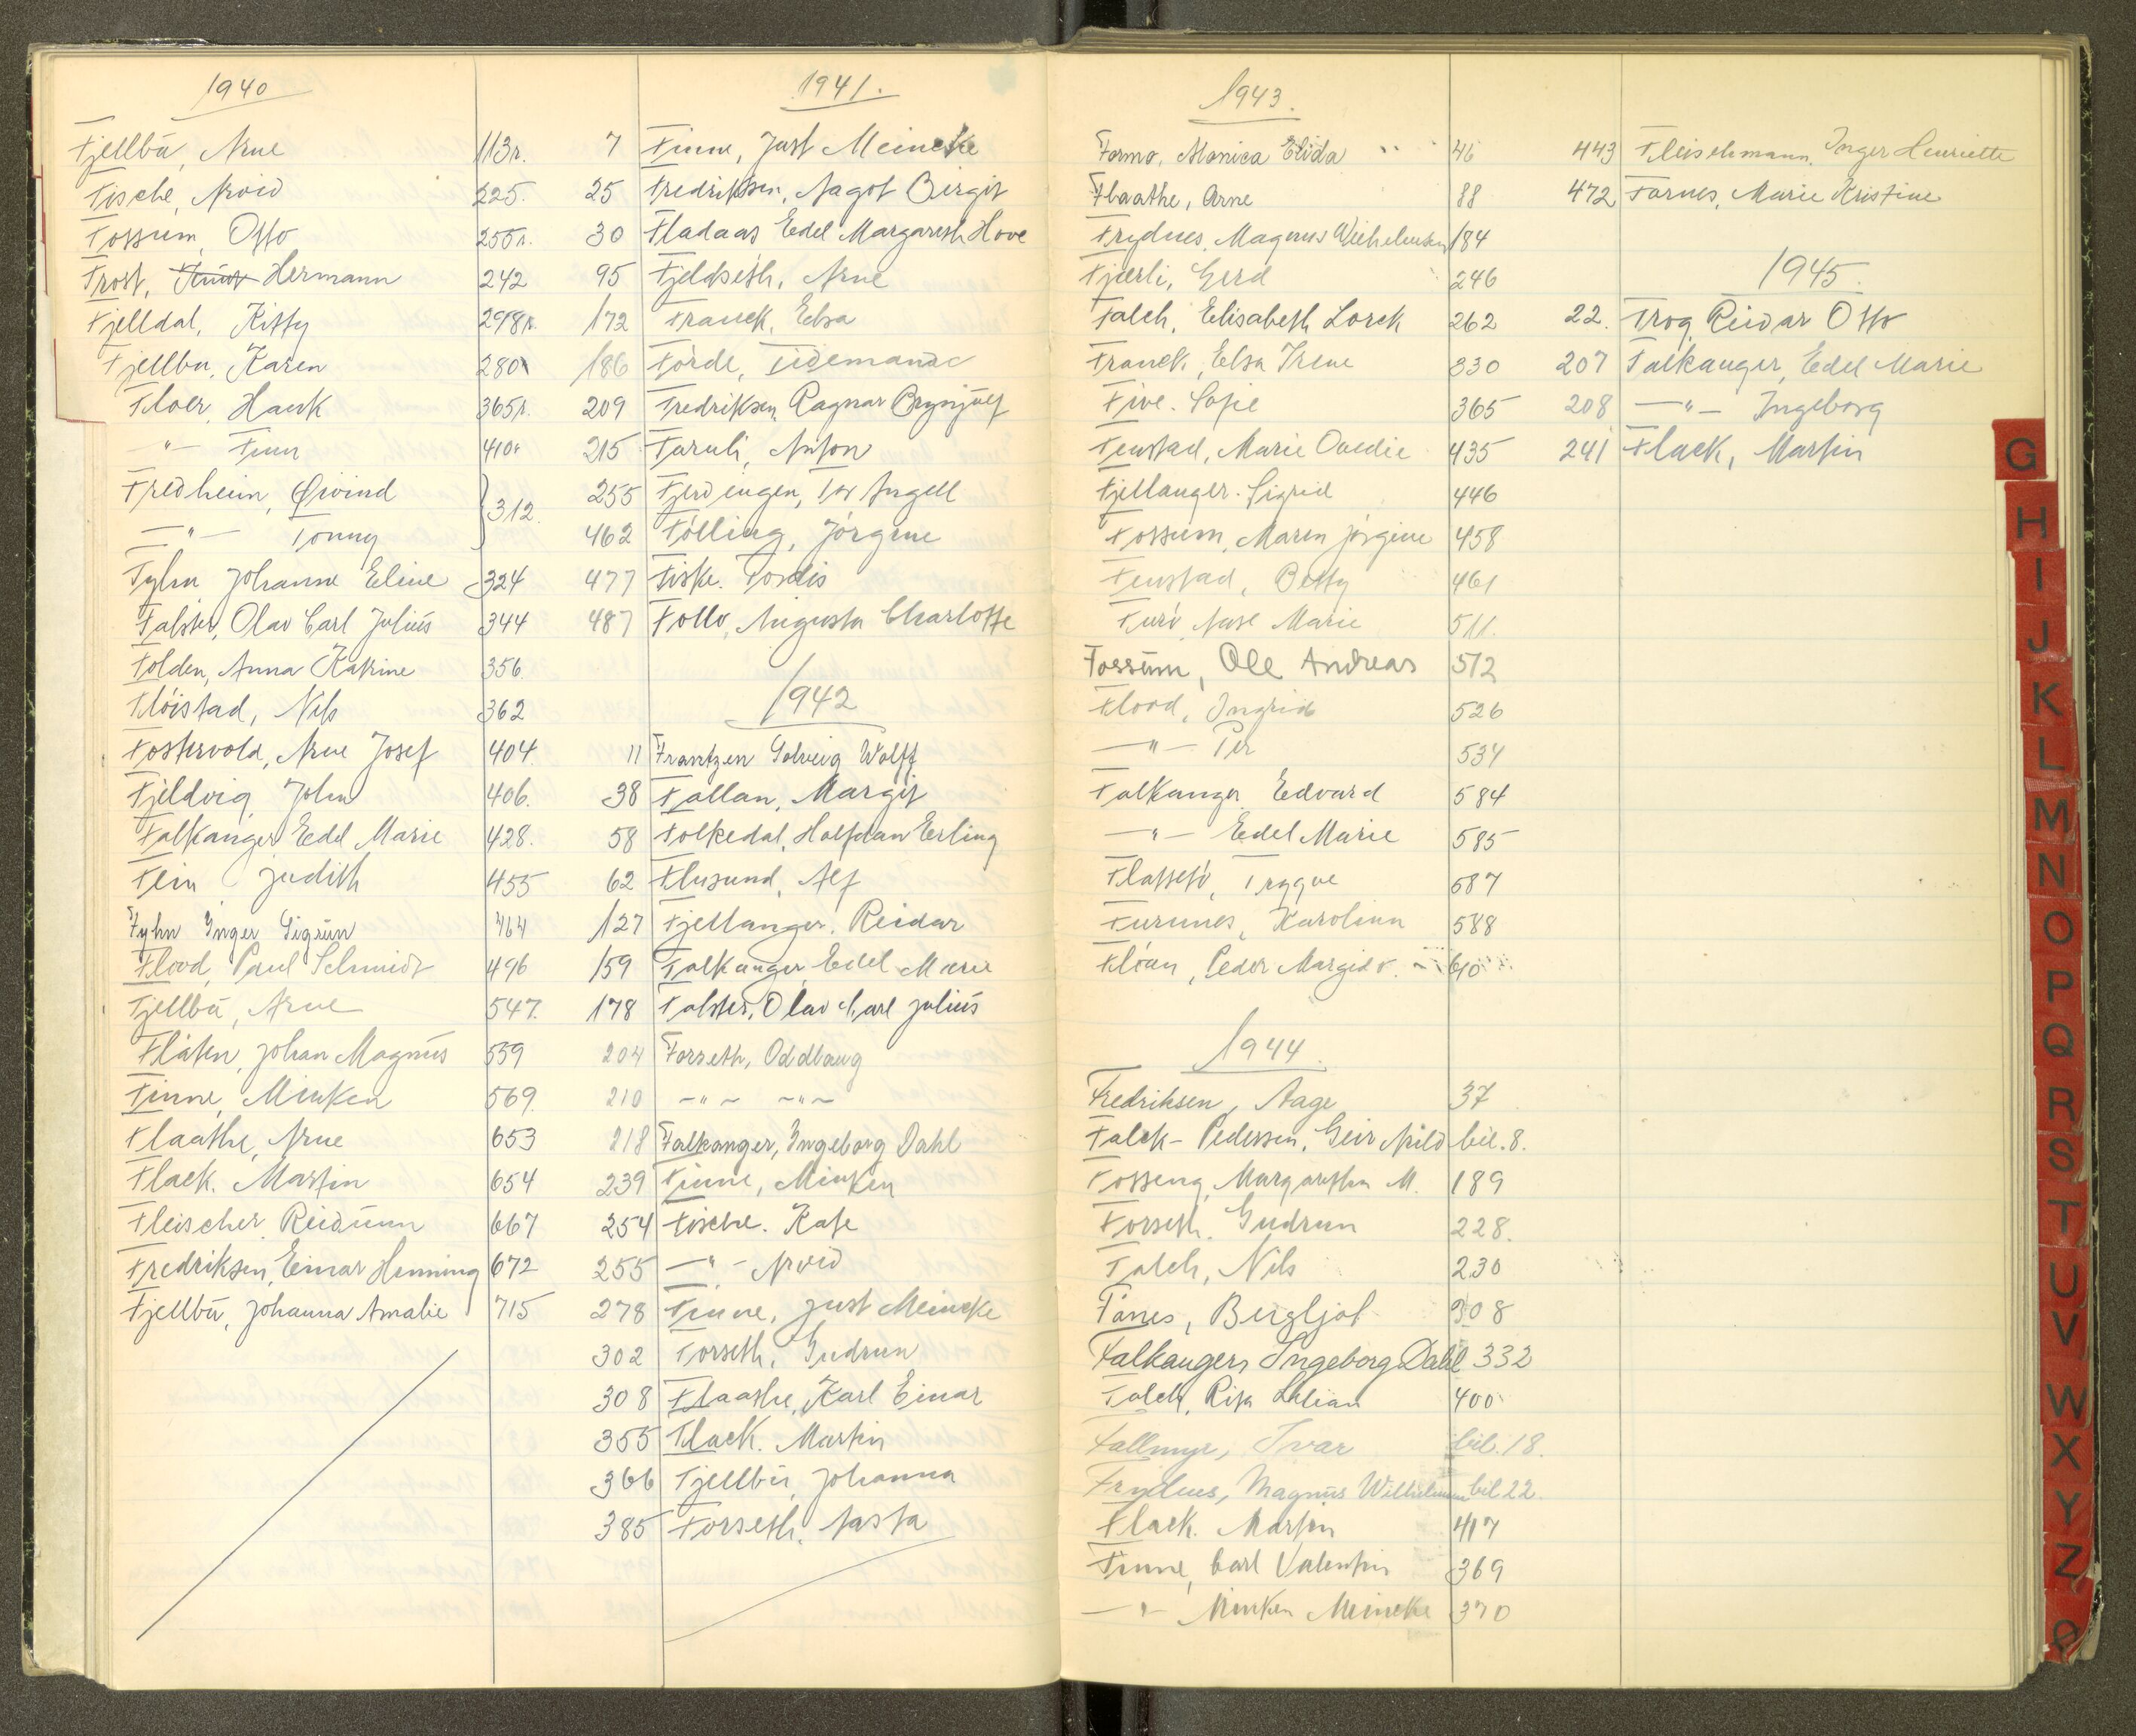 1940
Fjellbu, Arne 113r.
Fische, Arvid 225.
Fossum, Otto 255r.
Frost, Hermann 242
Fjelldal, Kitty 298r.
Fjellbu, Karen 280
Floer, Hauk 365r.
—"— Finn 410r
Fredheim, Øivind } 312.
—"— Tonny
Fyhn Johanne Eline 324
Falster, Olav Carl Julius 344
Folden, Anna Katrine 356.
Flöistad, Nils 362
Fostervold, Arne Josef 404.
Fjeldvig, John 406.
Falkanger Edel Marie 428.
Flem Judith 455
Fyhn Inger Sigrun 464
Flood, Paul Schmidt 496
Fjellbu, Arne 547.
Flåten, Johan Magnus 559
Finne, Minken 569.
Flaathe, Arne 653
Flack. Martin 654
Fleischer. Reidunn 667
Fredriksen, Einar Henning 672
Fjellbu, Johanna Amalie 715
1941.
7 Finne, Just Meincke
25 Fredriksen, Aagot Birgit
30 Fladaas Edel Margareth Hove
95 Fjeldseth, Arne
172 Franck, Elsa
186 Förde, Tidemand
209 Fredriksen, Ragnar Brynjulf
215 Faruli, Anton
255 Fjerdingen, Tor Angell
462 Fölling, Jörgine
477 Fiske. Tordis
487 Follo, Augusta Charlotte
1942
11 Frantzen Solveig Wolff
38 Fallan, Margit
58 Folkedal, Halfdan Erling
62 Flusund, Alf
127 Fjellanger, Reidar
159 Falkanger Edel Marie
178 Falster, Olav Carl Julius
204 Forseth, Oddlaug
210 —"— —"—
218 Falkanger, Ingeborg Dahl
239 Finne, Minken
254 Fische. Kate
255 —"— Arvid
278 Finne, Just Meincke
302 Forseth, Gudrun
308 Flaathe, Karl Einar
355 Flack. Martin
366 Fjellbu, Johanna
385 Forseth, Aasta
1943.
Formo, Monica Elida 46
Flaathe, Arne 88
Frydnes, Magnus Wilhelmsen 184
Fjærli, Gerd 246
Falch, Elisabeth Lorck 262
Franck, Elsa Irene 330
Five. Sofie 365
Fenstad, Marie Ovedie 435
Fjellanger. Sigrid 446
Fossum, Maren Jörgine 458
Fenstad, Betty 461
Furö, Aase Marie 511.
Fossum, Ole Andreas 512
Flood, Ingrid 526
—"— Per 534
Falkanger Edvard 584
—"— Edel Marie 585
Flattesö, Trygve 587
Furunes, Karolinn 588
Flöan, Peder Margido. 610
1944.
Fredriksen, Aage 37
Falck-Pedersen, Geir Arild bil. 8.
Fosseng, Margaretha M. 189
Forseth. Gudrun 228.
Falch, Nils 230
Fånes, Bergljot 308
Falkanger, Ingeborg Dahl 332
Falch, Rita Lilian 400
Fallmyr, Ivar bil. 18.
Frydnes, Magnus Wilhelmsen bil. 22.
Flack. Martin 417
Finne, Carl Valentin 369
—"— Minken Meincke 370
443 Fleischmann, Inger Henriette
472 Farnes, Marie Kristine
1945.
22. Frog Reidar Otto
207 Falkanger, Edel Marie
208 —"— Ingeborg
241 Flack, Martin
G
H
I
J
K
L
M
N
O
P
Q
R
S
T
U
V
W
X
Y
Z
Ø